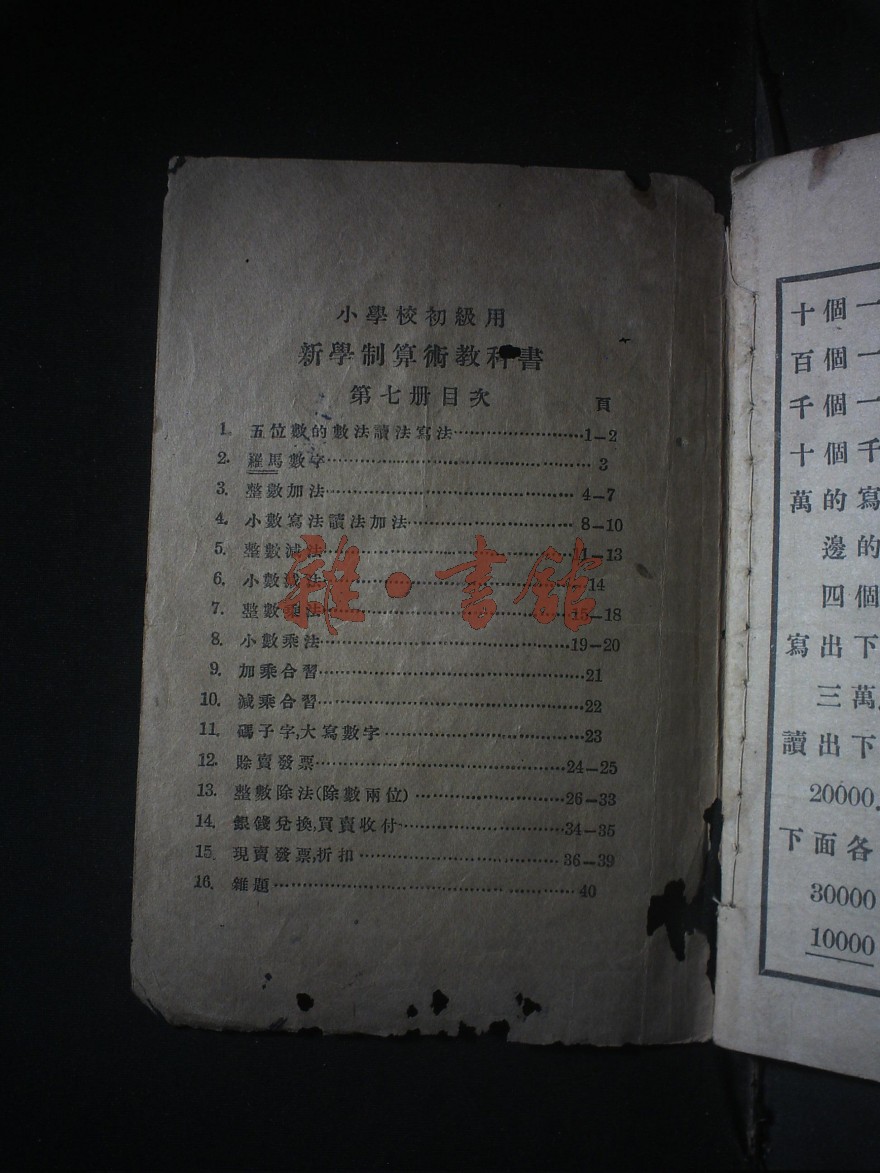 小學校初級用
新學制算術教科書
第七册目次
頁
1. 五位數的數法讀法寫法……1—2
2. 羅馬數字……3
3. 整數加法……4—7
4. 小數寫法讀法加法……8—10
5. 整數減法……11—13
6. 小數減法……14
7. 整數乘法……15—18
8. 小數乘法……19—20
9. 加乘合習……21
10. 減乘合習……22
11. 碼子字,大寫數字……23
12. 賒賣發票……24—25
13. 整數除法(除數兩位)……26—33
14. 銀錢兌換,買賣收付……34—35
15. 現賣發票,折扣……36—39
16. 雜題……40
雜·書館
十個一
百個一
千個一
十個千
萬的寫
邊的
四個
寫出下
三萬
讀出下
20000.
下面各
30000
10000